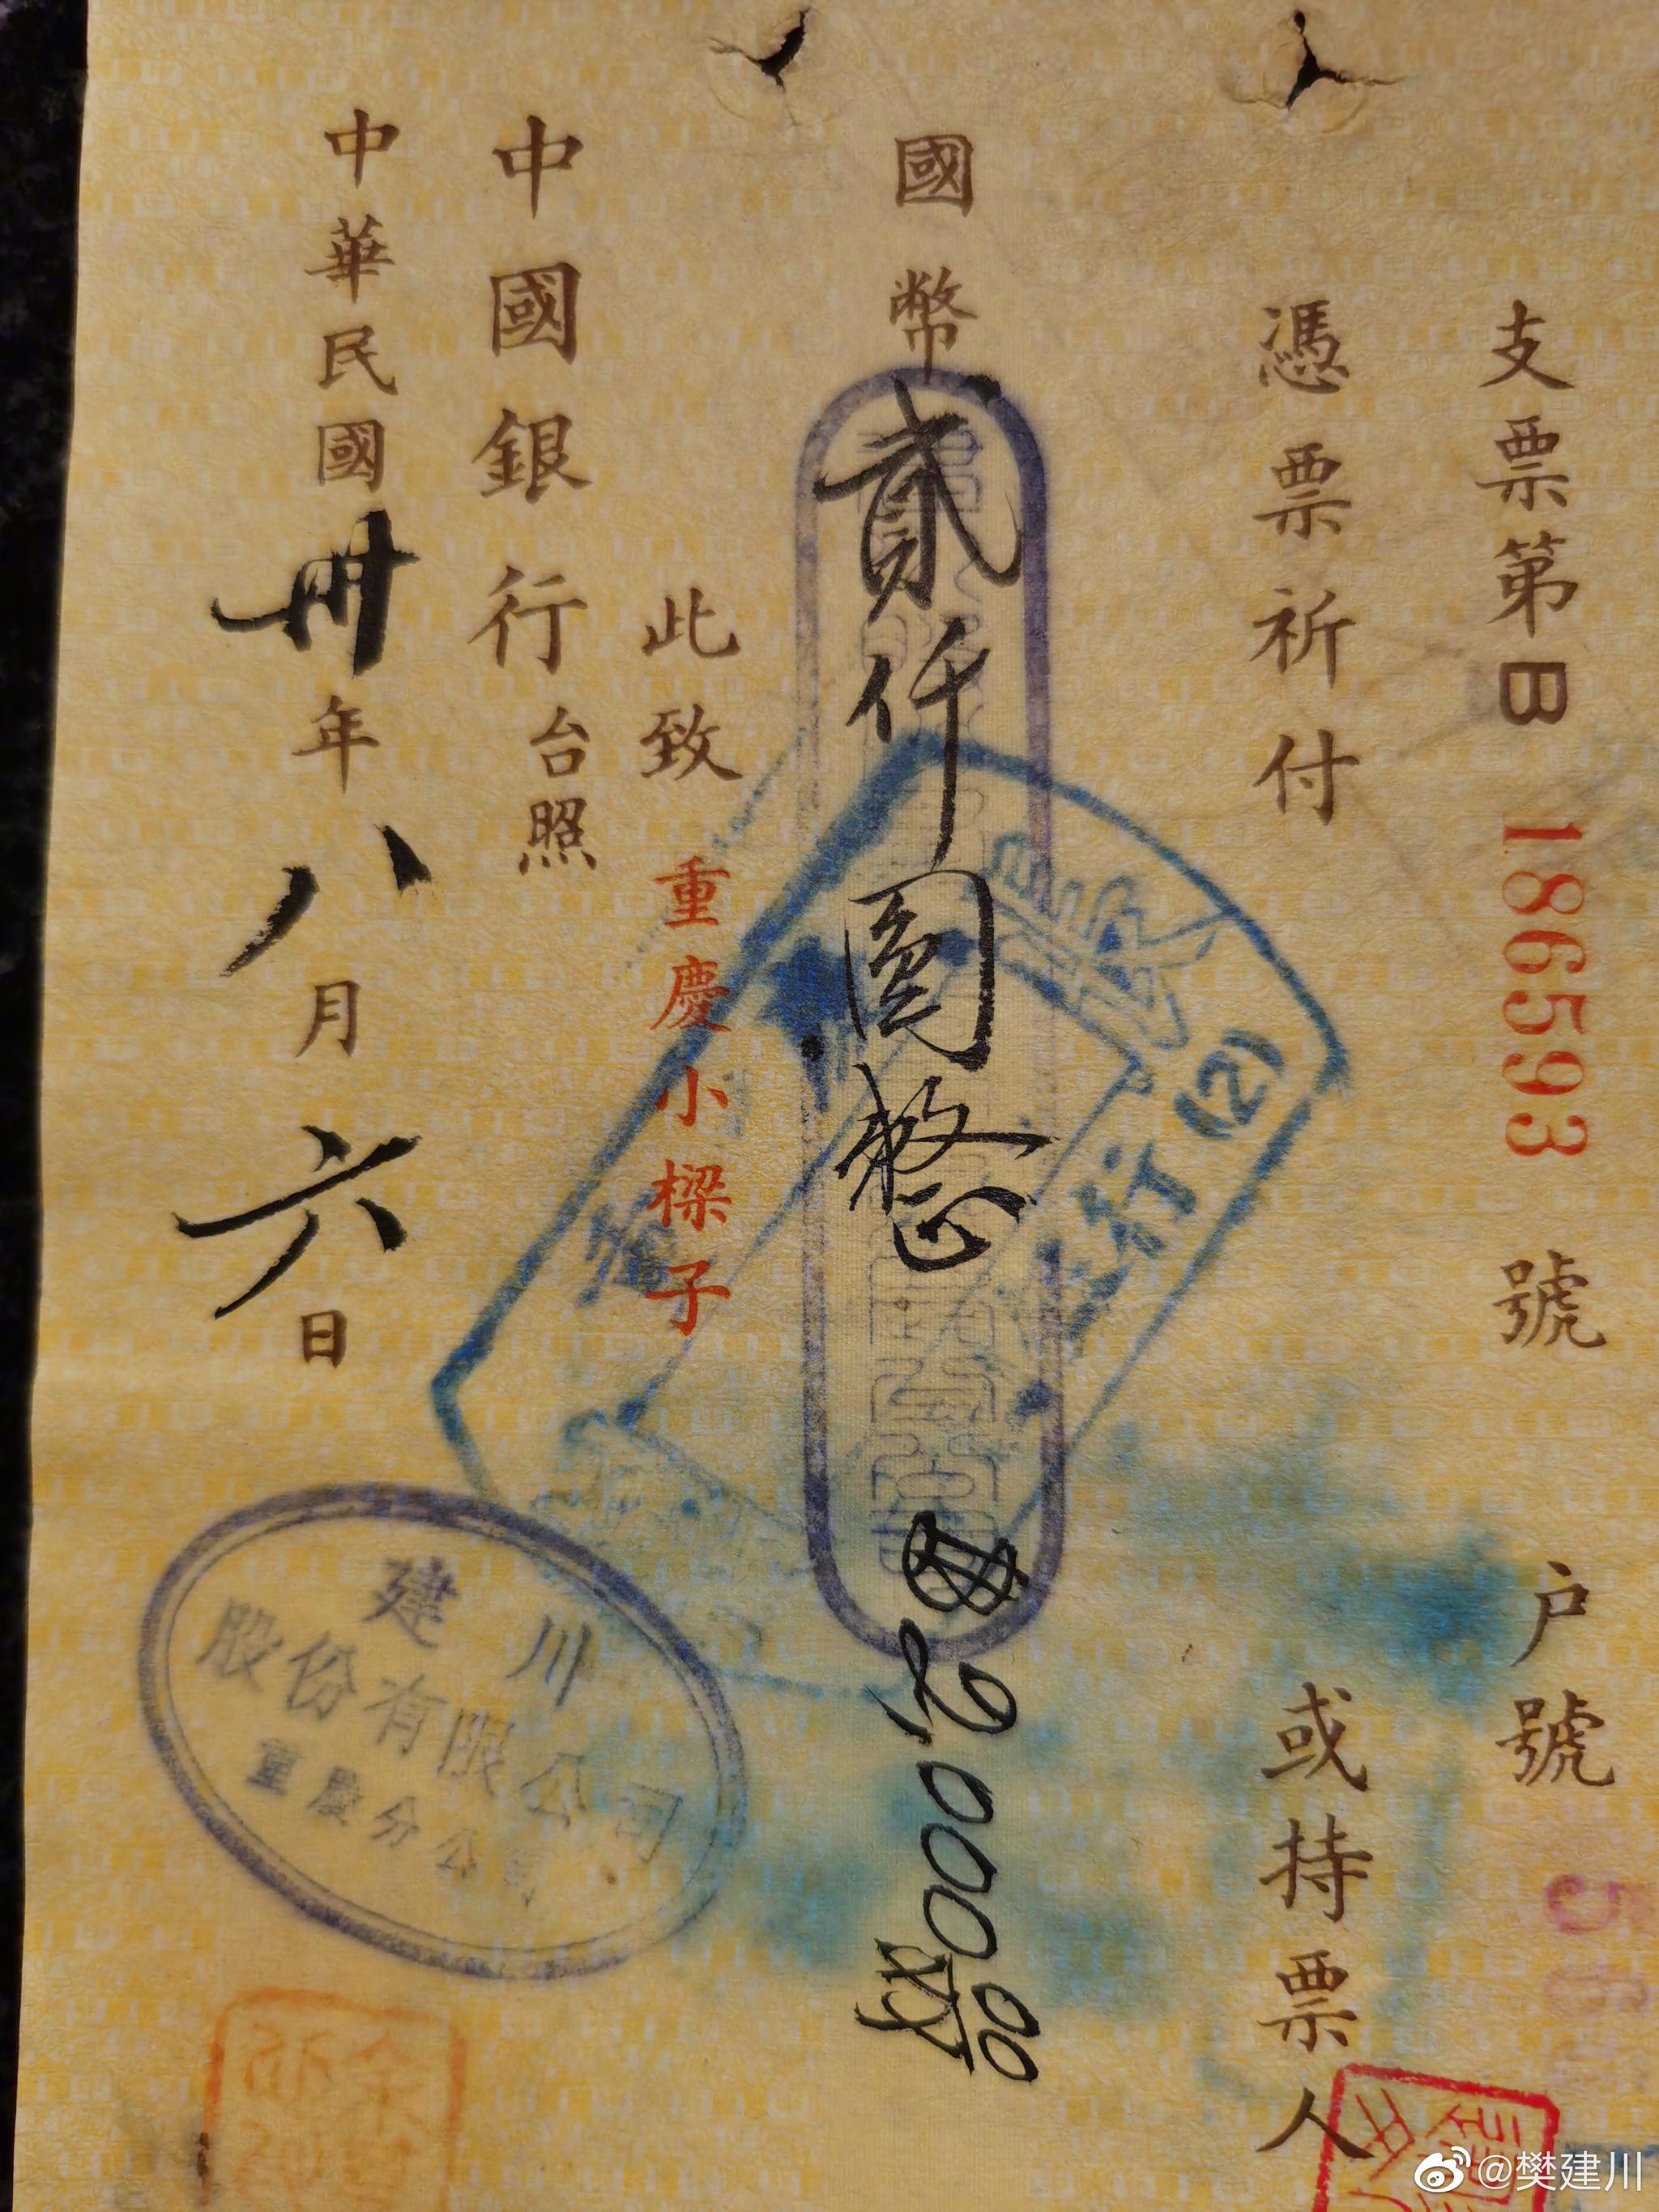 支票第B 186593 號 户號
憑票祈付 或持票人
國幣貳仟圓整 2000 00
此致 重慶小樑子
中國銀行台照
中華民國卅年八月六日
行(2)
建川
股份有限公司
重慶分公司
@樊建川